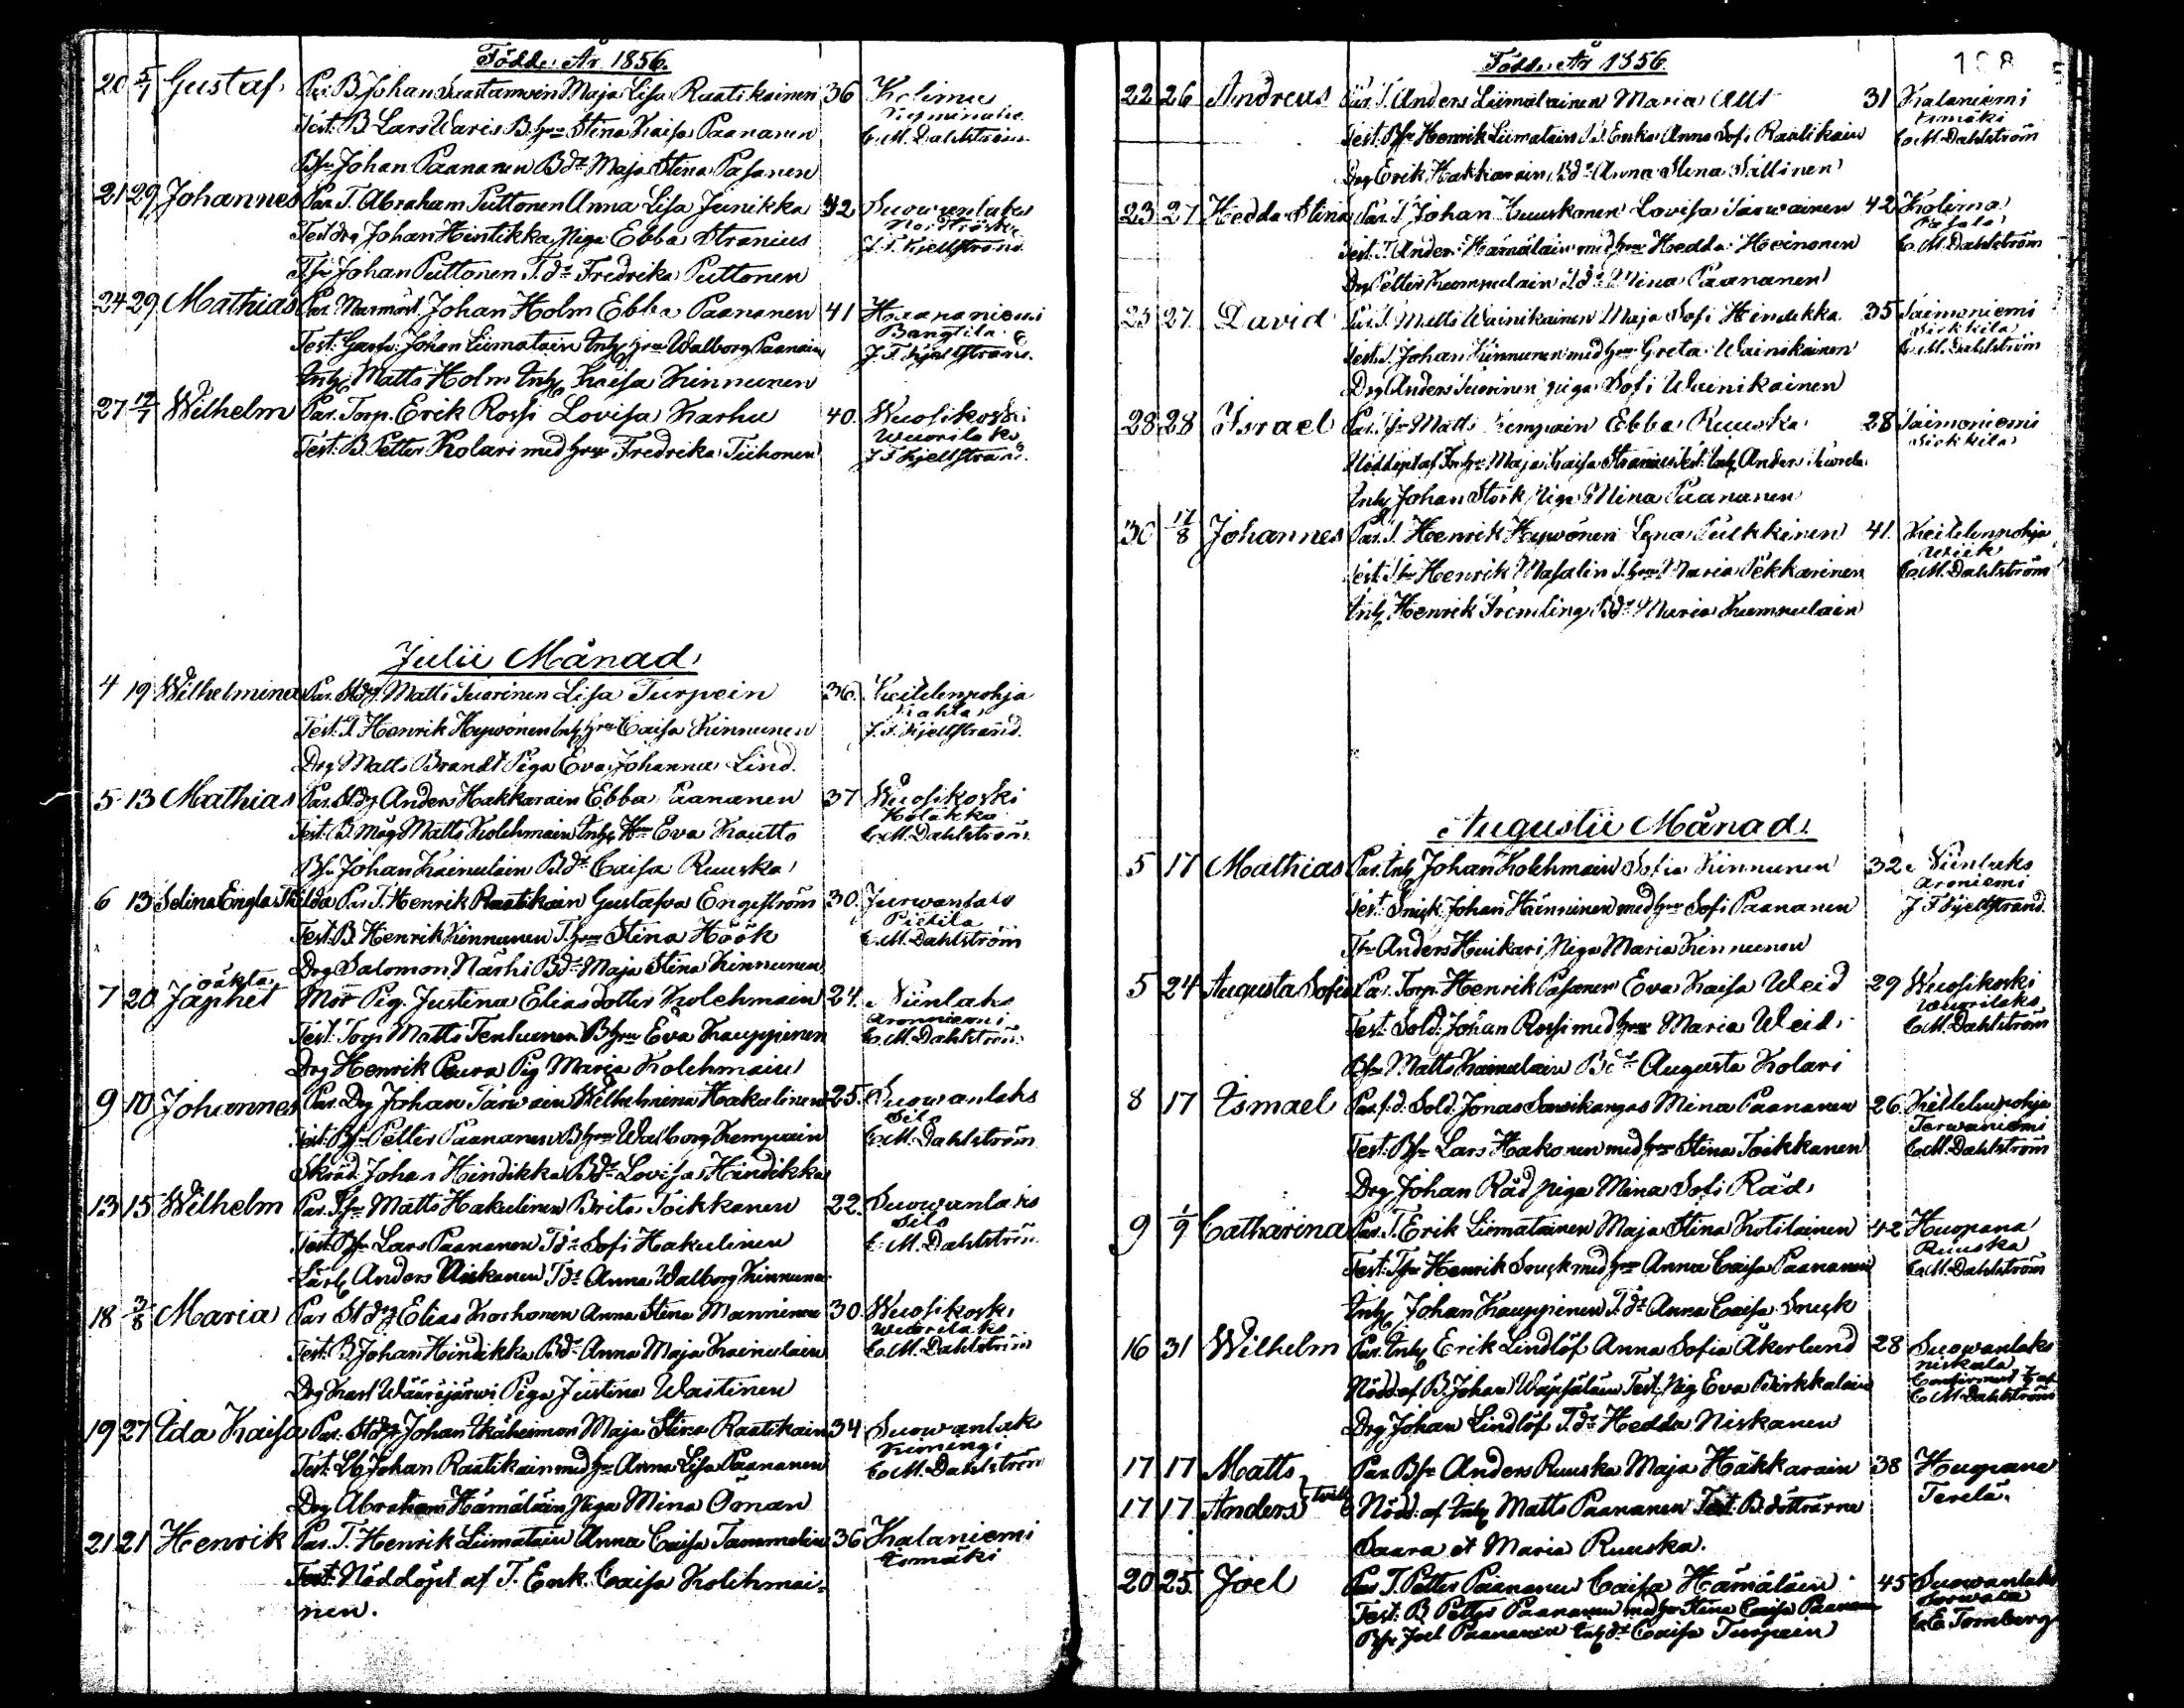 Födde År 1856.
20 5/7 Gustaf Par. B. Johan Maja Lisa Raatikainen 36 Kolima
Test. B. Lars Waris B. hru Stina Kaisa Paananen
C. M. Dahlström
Bsn Johan Paananen Bdr Maja Stina Pasanen
21 29 Johannes Par. T. Abraham Puttonen Anna Lisa Junikka 42 Suowanlaks
Test. drg Johan Hintikka piga Ebba Stranius
J. F. Kjellstrand
Tsn Johan Puttonen T. dr Fredrika Puttonen
24 29 Mathias Par. Johan Holm Ebba Paananen 41
Test. Johan Liimatain Inh. hru Walborg Paanain
Bangtila
J. F. Kjellstrand.
Inh. Matts Holm Inh. Kaisa Kinnunen
27 12/7 Wilhelm Par. Torp. Erik Rossi Lovisa Karhu 40. Wuosikoski
Test. B. Petter Kolari med hru Fredrika Tiihonen
Wuorilaks
J. F. Kjellstrand.
Julii Månad
4 19 Wilhelmina Par. Stdrg Matts Suorinen Lisa Turpein 36. Keitelenpohja
Test. T. Henrik Hyvönen Inh. hru Caisa Kinnunen
J. F. Kjellstrand.
Drg Matts Brandt Piga Eva Johanna Lind.
5 13 Mathias Par. Stdrg Anders Hakkarain Ebba Paananen 37 Wuosikoski
Test. B. måg Matts Kolehmain Inh. Hru Eva Kautto
Koläkkö
C. M. Dahlström
Bsn Johan Kainulain Bdr Caisa Ruuska
6 13 Selina Engla Thilda Par. T. Henrik Raatikain Gustafva Engeström 30. Jurwanlaks
Test. B. Henrik Kinnunen T. hru Stina Höök
Pietilä
C. M. Dahlström
Drg Salomon Närhi Bdr Maja Stina Kinnunen
7 20 oäkta Japhet Mor Pig. Justina Eliasdotter Kolehmain 24. Niinlaks
Test. Torp. Matts Tenhunen B hru Eva Kauppinen
Aroniemi
C. M. Dahlström
Drg Henrik Paura Pig Maria Kolehmain
9 10 Johannes Par. Drg Johan Tarwain Wilhelmina Hakulinen 25. Suowanlaks
Test. Bsn Petter Paananen B hru Walborg Kempain
C. M. Dahlström
Skräd. Johan Hindikka Bdr Lovisa Hindikka
13 15 Wilhelm Par. Tsn Matts Hakulinen Brita Toikkanen 22. Suowanlaks
Test. Bsn Lars Paananen Tdr Sofi Hakulinen
C. M. Dahlström
Lärl. Anders Niskanen Tdr Anna Walborg Kinnunen
18 3/8 Maria Par Stdrg Elias Korhonen Anna Stina Manninen 30. Wuosikoski
Test. B. Johan Hindikka Bdr Anna Maja Kainulain
Wuorilaks
C. M. Dahlström
Drg Wäärijärwi Piga Justina Wastinen
19 27 Ida Kaisa Par. Stdrg Johan Ikäheimon Maja Stina Raatikain 34 Suowanlak
Test. Johan Raatikain med hru Anna Lisa Paananen
C. M. Dahlström
Drg Abraham Hämäläin Piga Mina Öman
21 21 Henrik Par. T. Henrik Liimatain Anna Caisa Tammelin 36 Kalaniemi
Test. Nöddöpt af T. Enk. Caisa Kolehmai=
nen.
Födde År 1856. 108
22 26 Andreas Par. T. Anders Liimatainen Maria 31 Kalaniemi
Test. Bsn Henrik Liimatain T. Enka Anna Sofi Raatikain
C. M. Dahlström
Drg Erik Hakkarain Bdr Anna Stina Sällinen
23 27 Hedda Stina Par. T. Johan Kuuskonen Lovisa Tarwainen 42 Kolima
Test. T. Anders Hämäläin med hru Hedda Heinonen
C. M. Dahlström
Drg Petter Kumpulain T. dr Mina Paananen
25 27 David Par. T. Matts Wainikainen Maja Sofi Hindikka 35 Saimoniemi
Test. T. Johan Kinnunen med hru Greta Wainikainen
C. M. Dahlström
Drg Anders Suorinen piga Sofi Wainikainen
28 28 Israel Par. Tsn Matts Kempain Ebba Ruuska 28 Saimoniemi
Nöddöpt af Inh. Maja Kaisa Stranius Test. Inh. Anders
Inh. Johan Stork Piga Mina Paananen
30 17/8 Johannes Par. T. Henrik Hyvönen Lena Pulkkinen 41. Keitelenpohja
Test. Tsn Henrik Masalin T. hru Maria Pekkarinen
C. M. Dahlström
Inh. Henrik Främling Bdr Maria Kumpulain
Augustii Månad.
5 17 Mathias Par. Inh. Johan Kolehmain Sofia Kinnunen 32. Niinlaks
Test. Snick. Johan Hänninen med hru Sofi Paananen
Aroniemi
J. F. Kjellstrand
Tsn Anders Huikari Piga Maria Kinnunen
5 24 Augusta Sofia Par. Torp. Henrik Pasanen Eva Kaisa Weid 29 Wuosikoski
Test. Sold. Johan Rossi med hru Maria Weid.
Wuorilaks
C. M. Dahlström
Bsn Matts Kainulain Bdr Augusta Kolari
8 17 Ismael Par. f.d. Sold. Jonas Sawikangas Mina Paananen 26. Keitelenpohja
Test. Bsn Lars Hakonen med hru Stina Toikkanen
Terwaniemi
C. M. Dahlström
Drg Johan Råd piga Mina Sofi Råd
9 1/9 Catharina Par. T. Erik Liimatainen Maja Stina Kotilainen 42 Huopana
Test. Tsn Henrik Snick med hru Anna Caisa Paananen
Ruuska
C. M. Dahlström
Inh. Johan Kauppinen T. dr Anna Caisa Snick
16 31 Wilhelm Par. Inh. Erik Lindlöf Anna Sofia Åkerlund 28 Suowanlaks
Nödd. af B. Johan Test. Pig Eva Pirkkalain
Niskala
Confirmerat af
C. M. Dahlström
Drg Johan Lindlöf T. dr Hedda Niskanen
17 17 Matts Par. Bsn Anders Ruuska Maja Hakkarain 38 Huopana
17 17 Anders tvill. Nödd. af Inh. Matts Paananen Test. B. döttrarna Terelä.
Saara et Maria Ruuska.
20 25. Joel Par. T. Petter Paananen Caisa Hämäläin 45 Suowanlaks
Test. B. Petter Paananen med hru Stina Caisa Paananen
C. E. Tornberg
Bsn Joel Paananen Inh. dr Caisa Turpein